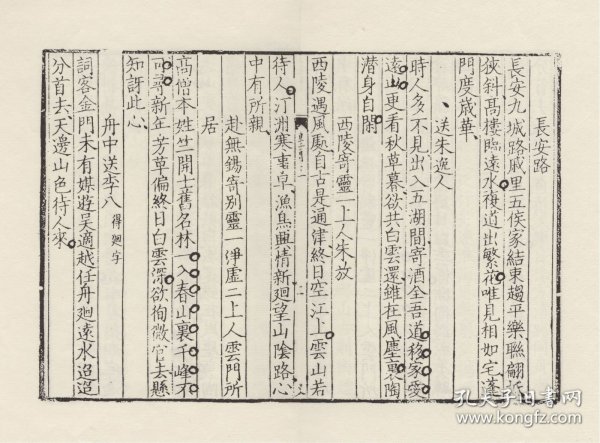 長安路
長安九城路戚里五侯家結束趨平樂聯翩抵
狹斜高樓臨遠水複道出繁花唯見相如宅蓬
門度歲華
送朱逸人
時人多不見出入五湖間寄酒全吾道移家愛
遠山更看秋草暮欲共白雲還雖在風塵裏陶
潜身自閑
西陵寄靈一上人朱放
西陵遇風處自古是通津終日空江上雲山若
待人汀洲寒事早漁鳥興情新廻望山陰路心
中有所親
赴無錫寄别靈一淨虛二上人雲門所
居
高僧本姓竺開士舊名林一入春山裏千峰不
可尋新年芳草偏終日白雲深欲徇微官去懸
知訝此心
舟中送李八得廻字
詞客金門未有媒遊吳適越任舟廻遠水迢迢
分首去天邊山色待人來
孔夫子旧书网
www.kongfz.com